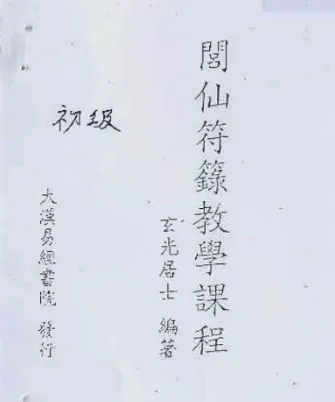 閭仙符籙教學課程
玄光居士 編著
初級
大漢易經書院 發行